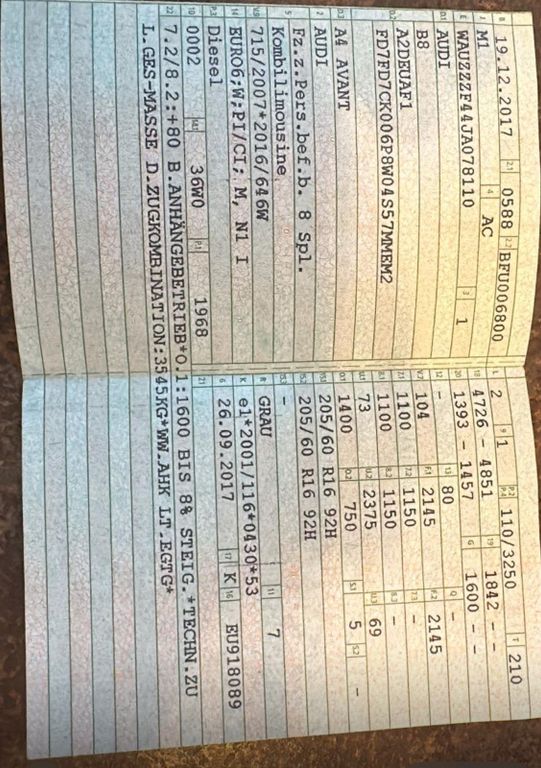 B 19.12.2017 2.1 0588 2.2 BFU006800
J M1 4 AC
E WAUZZZF44JA078110 3 1
D.1 AUDI
B8
D.2 A2DEUAF1
FD7FD7CK006P8W04S57MMEM2
D.3 A4 AVANT
2 AUDI
5 Fz.z.Pers.bef.b. 8 Spl.
Kombilimousine
V.9 715/2007*2016/646W
14 EURO6;W;PI/CI; M, N1 I
P.3 Diesel
10 0002 14.1 36W0 P.1 1968
22 7.2/8.2:+80 B.ANHÄNGEBETRIEB*O.1:1600 BIS 8% STEIG.*TECHN.ZU
L.GES-MASSE D.ZUGKOMBINATION:3545KG*WW.AHK LT.EGTG*
L 2 9 1 P.2 P.4 110/3250 T 210
18 4726 - 4851 19 1842 - -
20 1393 - 1457 G 1600 - -
12 - 13 80 Q -
V.7 104 F.1 2145 F.2 2145
7.1 1100 7.2 1150 7.3 -
8.1 1100 8.2 1150 8.3 -
U.1 73 U.2 2375 U.3 69
O.1 1400 O.2 750 S.1 5 S.2 -
15.1 205/60 R16 92H
15.2 205/60 R16 92H
15.3 -
R GRAU 11 7
K e1*2001/116*0430*53
6 26.09.2017 17 K 16 EU918089
21